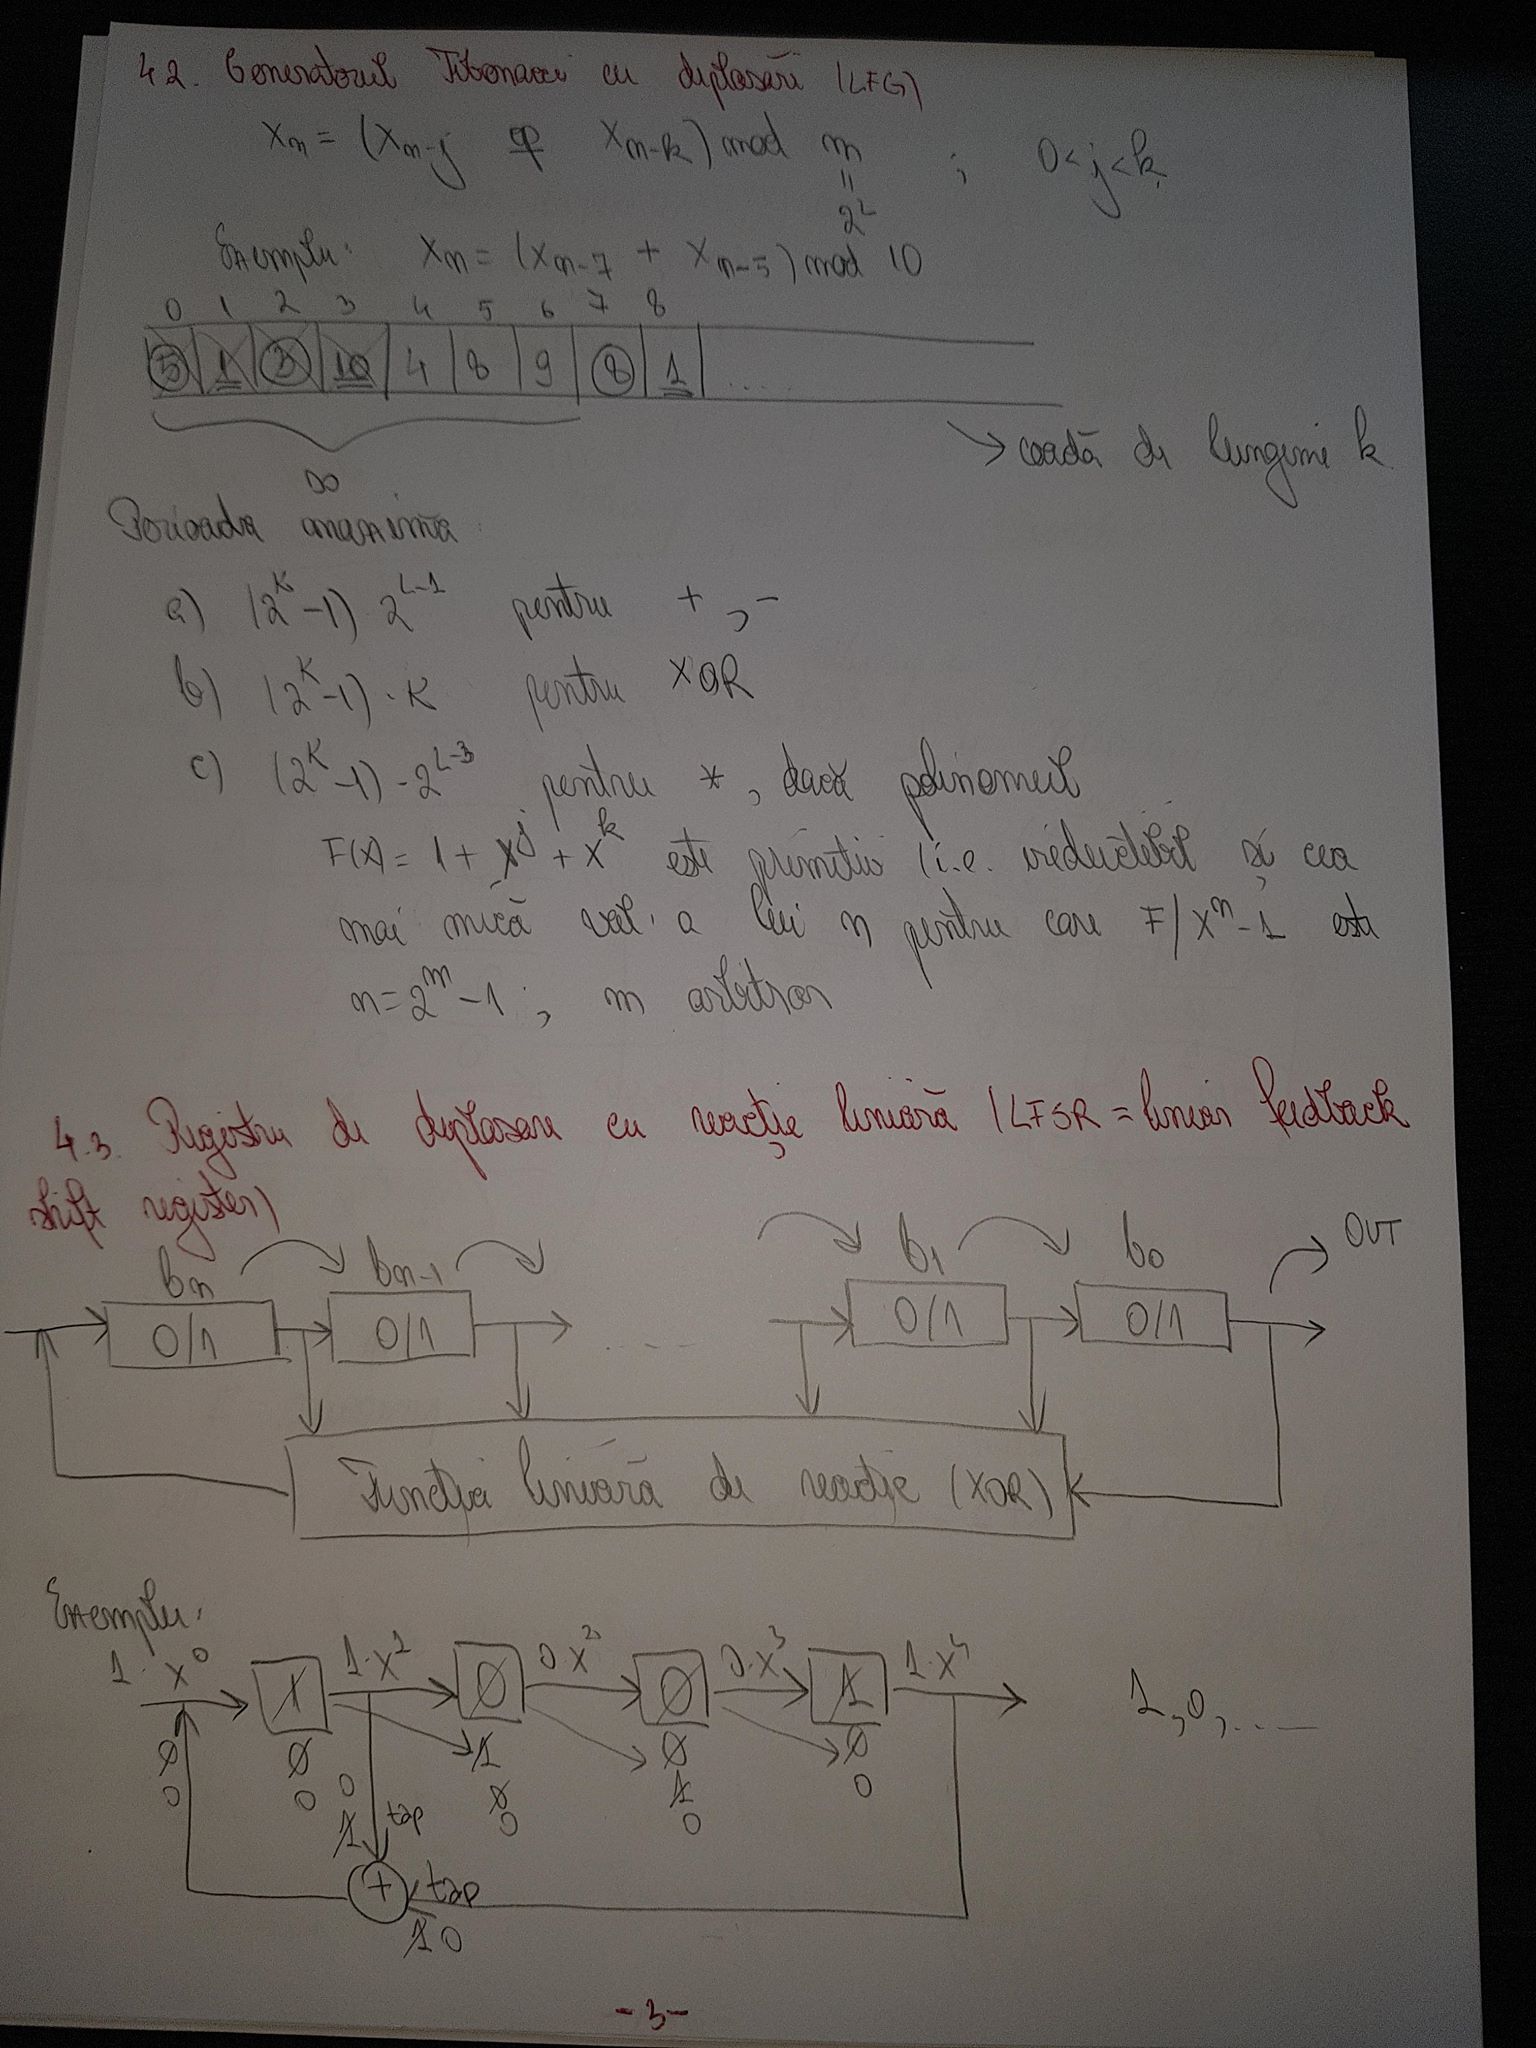 4.2. Generatorul Fibonacci cu deplasări (LFG)
Xn = (Xn-j op Xn-k) mod m ; 0<j<k
=
2^L
Exemplu: Xn = (Xn-7 + Xn-5) mod 10
0 1 2 3 4 5 6 7 8
5 1 3 10 4 8 9 8 1 ....
→ coadă de lungime k
s0
Perioada maximă
a) (2^k-1)·2^(L-1) pentru +, -
b) (2^k-1)·k pentru XOR
c) (2^k-1)·2^(L-3) pentru *, dacă polinomul
F(X) = 1 + X^j + X^k este primitiv (i.e. ireductibil și cea
mai mică val. a lui n pentru care F/X^n-1 este
n=2^m-1; m arbitrar
4.3. Registru de deplasare cu reacție liniară (LFSR = linear feedback
shift register)
bn bn-1 b1 b0 OUT
0/1 0/1 .... 0/1 0/1
Funcția liniară de reacție (XOR)
Exemplu:
1·X^0 1·X^1 0·X^2 0·X^3 1·X^4
1 0 0 1 1,0,....
0 0 1 0 0
0 0 0 0 1 0
1 tap 0 0
+ tap
1 0
-3-